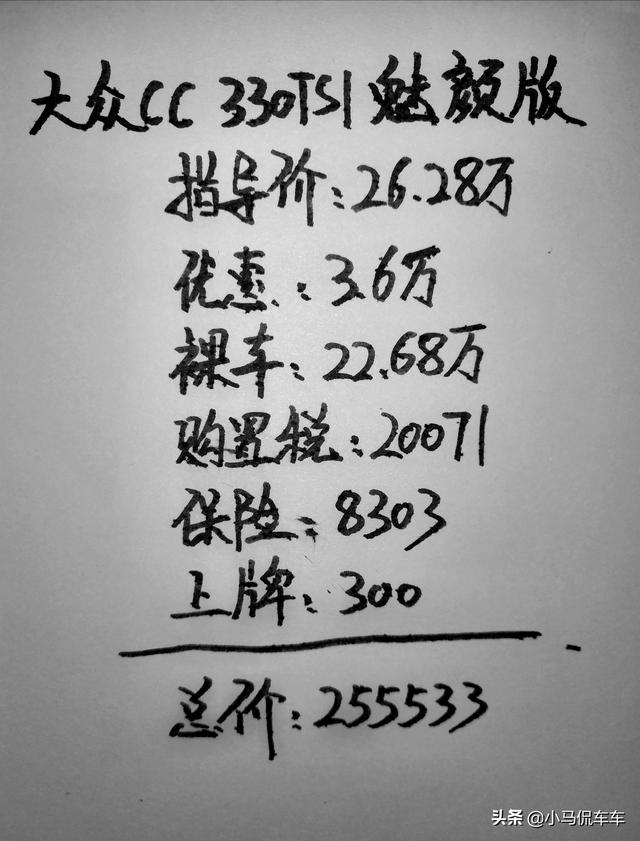 大众CC 330TSI 魅颜版
指导价:26.28万
优惠:3.6万
裸车:22.68万
购置税:20071
保险:8303
上牌:300
总价:255533
头条 @小马侃车车